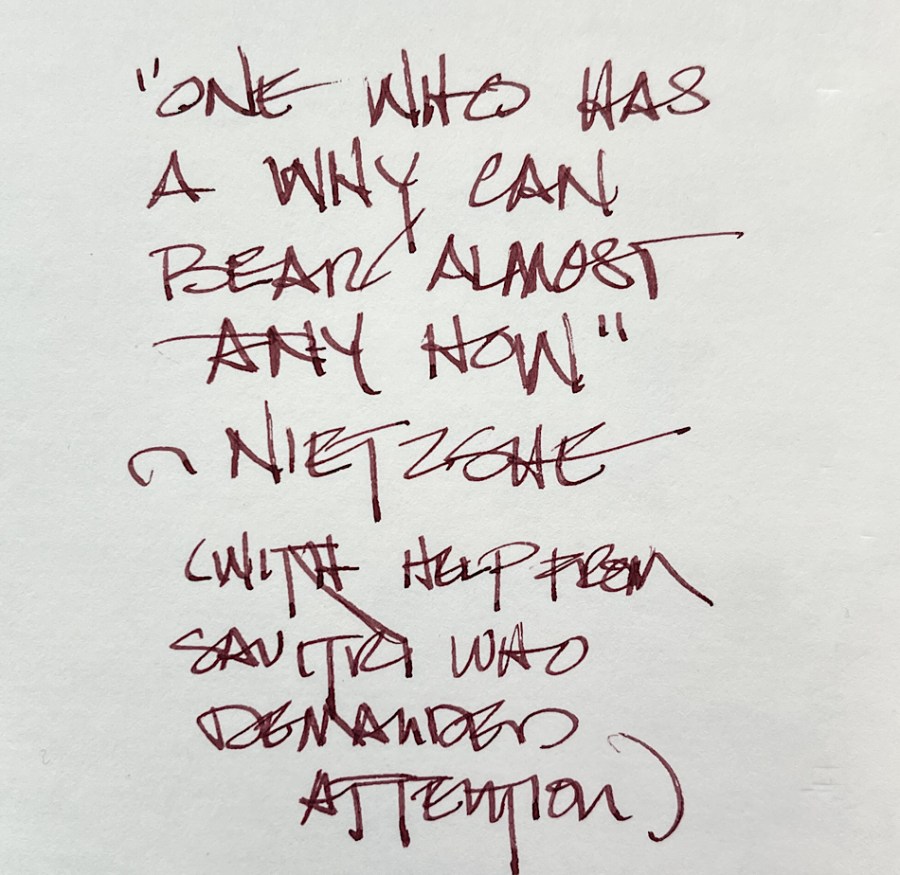 "ONE WHO HAS
A WHY CAN
BEAR ALMOST
ANY HOW"
~ NIETZSCHE
(WITH HELP FROM
SAVITRI WHO
DEMANDED
ATTENTION)